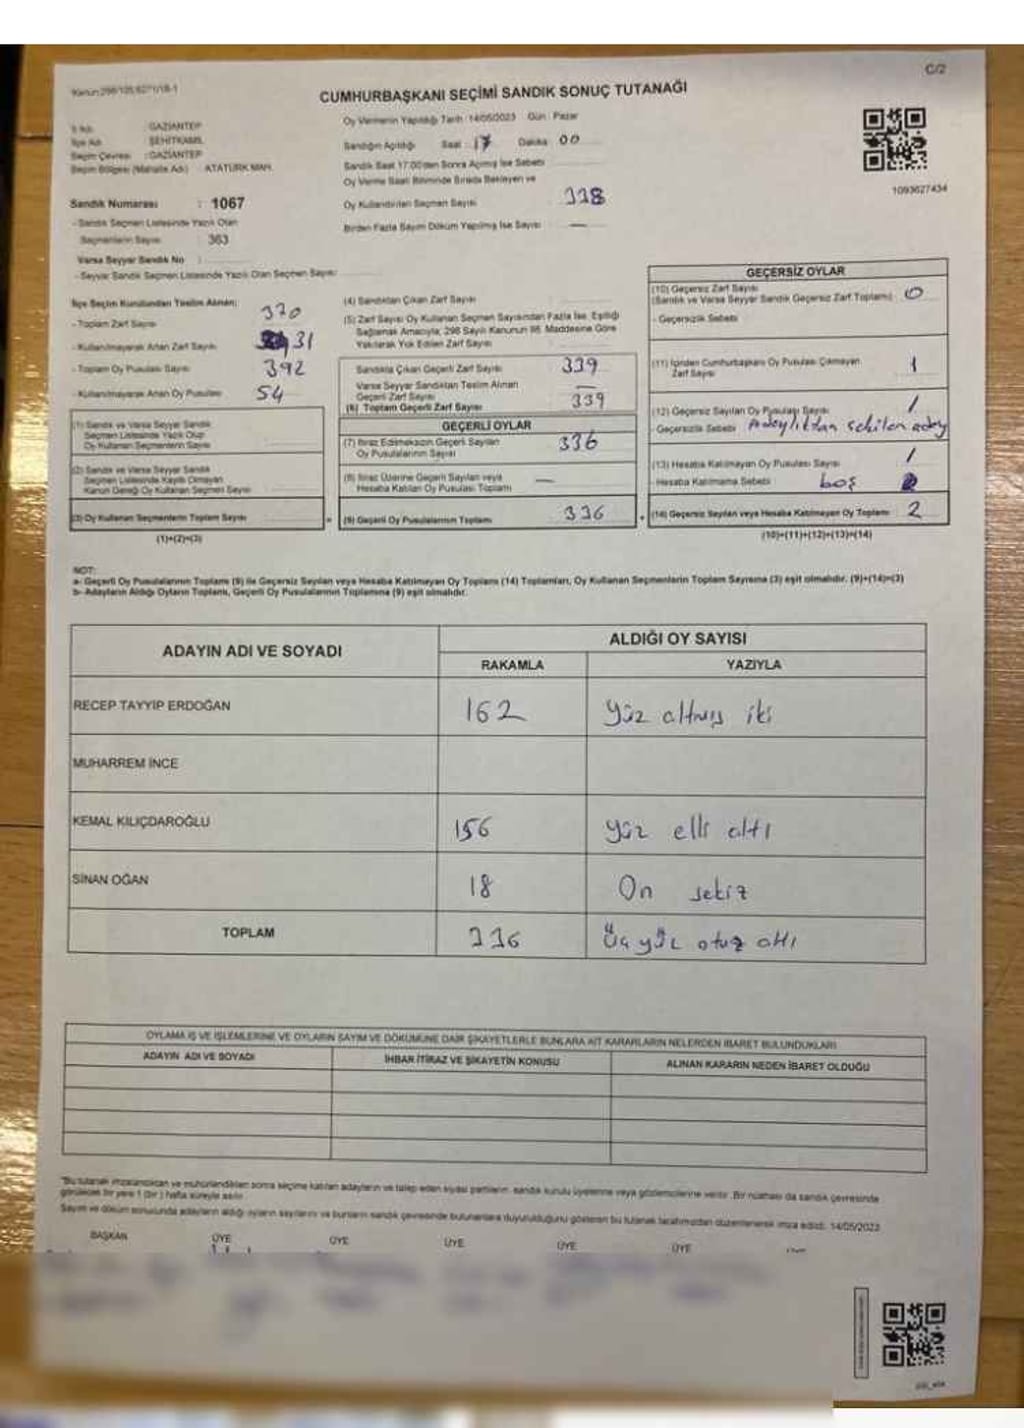 C/2
CUMHURBAŞKANI SEÇİMİ SANDIK SONUÇ TUTANAĞI
İl Adı : GAZİANTEP
İlçe Adı : ŞEHİTKAMİL
Seçim Çevresi : GAZİANTEP
Seçim Bölgesi (Mahalle Adı) : ATATÜRK MAH.
Oy Vermenin Yapıldığı Tarih : 14/05/2023 Gün : Pazar
Sandığın Açıldığı Saat : 17 Dakika 00
Sandık Saat 17:00'den Sonra Açılmış İse Sebebi
Oy Verme Saati Bitiminde Sırada Bekleyen ve
Oy Kullandırılan Seçmen Sayısı 338
Birden Fazla Sayım Döküm Yapılmış İse Sayısı —
1093627434
Sandık Numarası : 1067
- Sandık Seçmen Listesinde Yazılı Olan
Seçmenlerin Sayısı : 363
Varsa Seyyar Sandık No :
- Seyyar Sandık Seçmen Listesinde Yazılı Olan Seçmen Sayısı:
İlçe Seçim Kurulundan Teslim Alınan;
- Toplam Zarf Sayısı 370
- Kullanılmayarak Artan Zarf Sayısı 31
- Toplam Oy Pusulası Sayısı 392
- Kullanılmayarak Artan Oy Pusulası 54
(1) Sandık ve Varsa Seyyar Sandık
Seçmen Listesinde Yazılı Olup
Oy Kullanan Seçmenlerin Sayısı
(2) Sandık ve Varsa Seyyar Sandık
Seçmen Listesinde Kayıtlı Olmayan
Kanun Gereği Oy Kullanan Seçmen Sayısı
(3) Oy Kullanan Seçmenlerin Toplam Sayısı
(1)+(2)=(3)
(4) Sandıktan Çıkan Zarf Sayısı
(5) Zarf Sayısı Oy Kullanan Seçmen Sayısından Fazla İse, Eşitliği
Sağlamak Amacıyla; 298 Sayılı Kanunun 98. Maddesine Göre
Yakılarak Yok Edilen Zarf Sayısı
Sandıkta Çıkan Geçerli Zarf Sayısı 339
Varsa Seyyar Sandıktan Teslim Alınan
Geçerli Zarf Sayısı —
(6) Toplam Geçerli Zarf Sayısı 339
GEÇERLİ OYLAR
(7) İtiraz Edilmeksizin Geçerli Sayılan
Oy Pusulalarının Sayısı 336
(8) İtiraz Üzerine Geçerli Sayılan veya
Hesaba Katılan Oy Pusulası Toplamı —
(9) Geçerli Oy Pusulalarının Toplamı 336
GEÇERSİZ OYLAR
(10) Geçersiz Zarf Sayısı
(Sandık ve Varsa Seyyar Sandık Geçersiz Zarf Toplamı) 0
- Geçersizlik Sebebi
(11) İçinden Cumhurbaşkanı Oy Pusulası Çıkmayan
Zarf Sayısı 1
(12) Geçersiz Sayılan Oy Pusulası Sayısı 1
- Geçersizlik Sebebi Adaylıktan çekilen aday
(13) Hesaba Katılmayan Oy Pusulası Sayısı 1
- Hesaba Katılmama Sebebi boş
(14) Geçersiz Sayılan veya Hesaba Katılmayan Oy Toplamı 2
(10)+(11)+(12)+(13)=(14)
NOT:
a- Geçerli Oy Pusulalarının Toplamı (9) ile Geçersiz Sayılan veya Hesaba Katılmayan Oy Toplamı (14) Toplamları, Oy Kullanan Seçmenlerin Toplam Sayısına (3) eşit olmalıdır. (9)+(14)=(3)
b- Adayların Aldığı Oyların Toplamı, Geçerli Oy Pusulalarının Toplamına (9) eşit olmalıdır.
ADAYIN ADI VE SOYADI
ALDIĞI OY SAYISI
RAKAMLA YAZIYLA
RECEP TAYYİP ERDOĞAN 162 Yüz altmış iki
MUHARREM İNCE
KEMAL KILIÇDAROĞLU 156 yüz elli altı
SİNAN OĞAN 18 On sekiz
TOPLAM 336 Üç yüz otuz altı
OYLAMA İŞ VE İŞLEMLERİNE VE OYLARIN SAYIM VE DÖKÜMÜNE DAİR ŞİKAYETLERLE BUNLARA AİT KARARLARIN NELERDEN İBARET BULUNDUKLARI
ADAYIN ADI VE SOYADI İHBAR İTİRAZ VE ŞİKAYETİN KONUSU ALINAN KARARIN NEDEN İBARET OLDUĞU
"Bu tutanak imzalandıktan ve mühürlendikten sonra seçime katılan adayların ve talep eden siyasi partilerin, sandık kurulu üyelerine veya gözlemcilerine verilir. Bir nüshası da sandık çevresinde
görülecek bir yere 1 (bir) hafta süreyle asılır.
Sayım ve döküm sonucunda adayların aldığı oyların sayılarını ve bunların sandık çevresinde bulunanlara duyurulduğunu gösteren bu tutanak tarafımızdan düzenlenerek imza edildi. 14/05/2023
BAŞKAN ÜYE ÜYE ÜYE ÜYE ÜYE